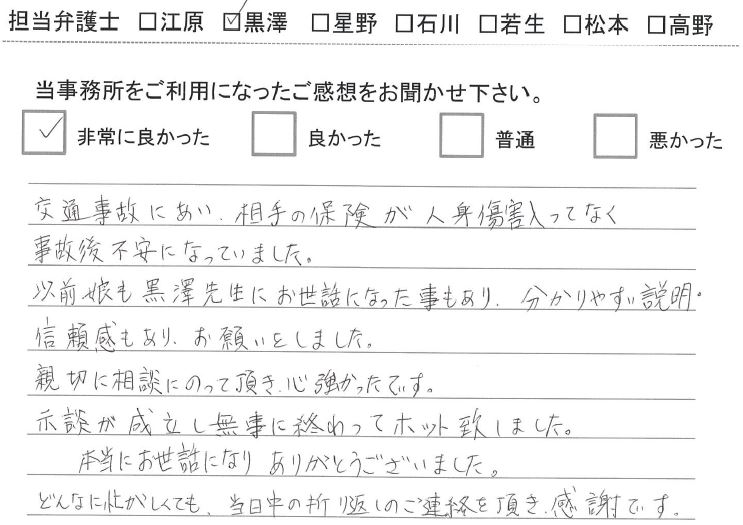 担当弁護士 □江原 ☑黒澤 □星野 □石川 □若生 □松本 □高野
当事務所をご利用になったご感想をお聞かせ下さい。
☑ 非常に良かった □ 良かった □ 普通 □ 悪かった
交通事故にあい、相手の保険が人身傷害入ってなく
事故後不安になっていました。
以前娘も黒澤先生にお世話になった事もあり、分かりやすい説明・
信頼感もあり、お願いをしました。
親切に相談にのって頂き、心強かったです。
示談が成立し無事に終わってホット致しました。
本当にお世話になりありがとうございました。
どんなに忙がしくても、当日中の折り返しのご連絡を頂き、感謝です。